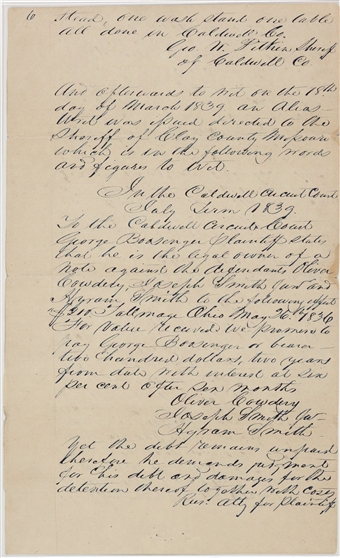 6 Stead, one wash stand one table
all done in Caldwell Co.
Geo. W. Pitkin Sheriff
of Caldwell Co
And afterwards to wit on the 18th
day of March 1839 an Alias
Writ was issued directed to the
Sheriff of Clay County Missouri
which is in the following words
and figures to wit.
In the Caldwell Circuit Court
July Term 1839.
To the Caldwell Circuit Court
George Bonsinger Plaintiff states
that he is the legal owner of a
note against the defendants Oliver
Cowdery, Joseph Smith Jur and
Hyram Smith to the following effect
$200 Tallmage Ohio May 26th 1836
For value received we promise to
pay George Bonsinger or bearer
two hundred dollars, two years
from date with interest at six
per cent after six months
Oliver Cowdery
Joseph Smith Jur
Hyram Smith
Yet the debt remains unpaid
therefore he demands judgment
for his debt and damages for the
detention thereof together with costs
Atty for Plaintiff